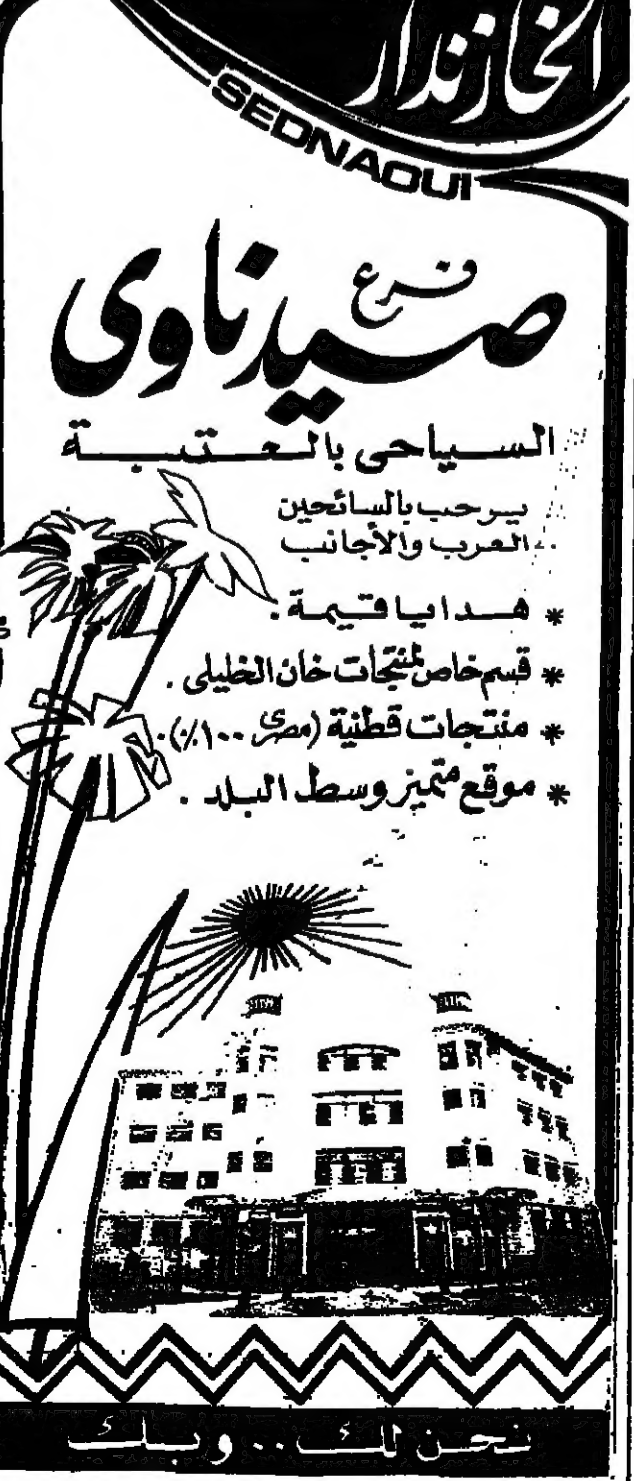 الخازندار
SEDNAOUI
فرع
صيدناوى
السياحى بالعتبة
يرحب بالسائحين
العرب والأجانب
* هدايا قيمة .
* قسم خاص لمنتجات خان الخليلى .
* منتجات قطنية (مصرى ١٠٠٪) .
* موقع متميز وسط البلد .
نحن لك .. وبك